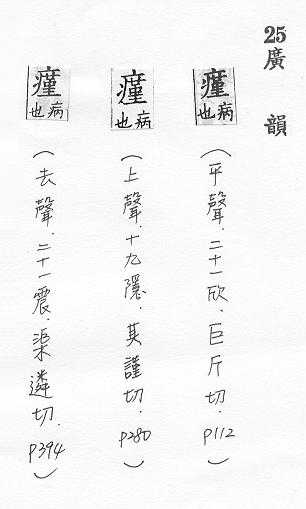 25 廣韻
瘽 病也
(平聲．二十一欣．巨斤切．P112)
瘽 病也
(上聲．十九隱．其謹切．P280)
瘽 病也
(去聲．二十一震．渠遴切．P394)